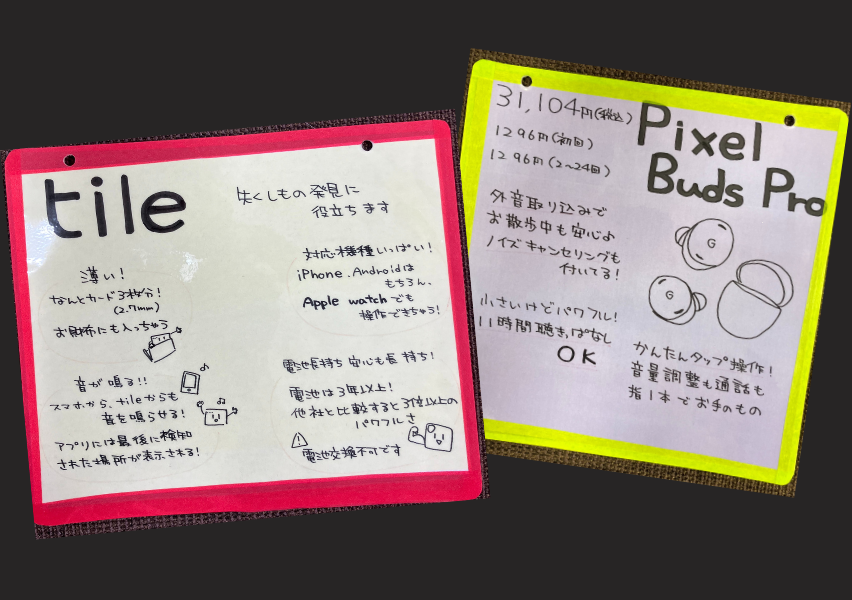 tile
失くしもの発見に
役立ちます
薄い!
なんとカード3枚分!
(2.7mm)
お財布にも入っちゃう
音が鳴る!!
スマホから、tileからも
音を鳴らせる!
アプリには最後に検知
された場所が表示される!
対応機種いっぱい!
iPhone、Androidは
もちろん、
Apple watchでも
操作できちゃう!
電池長持ち 安心も長持ち!
電池は3年以上!
他社と比較すると3倍以上の
パワフルさ
電池交換不可です
31,104円(税込)
1296円(初回)
1296円(2〜24回)
Pixel
Buds Pro
外音取り込みで
お散歩中も安心♪
ノイズキャンセリングも
付いてる!
小さいけどパワフル!
11時間聴きっぱなし
OK
G
G
かんたんタップ操作!
音量調整も通話も
指1本でお手のもの